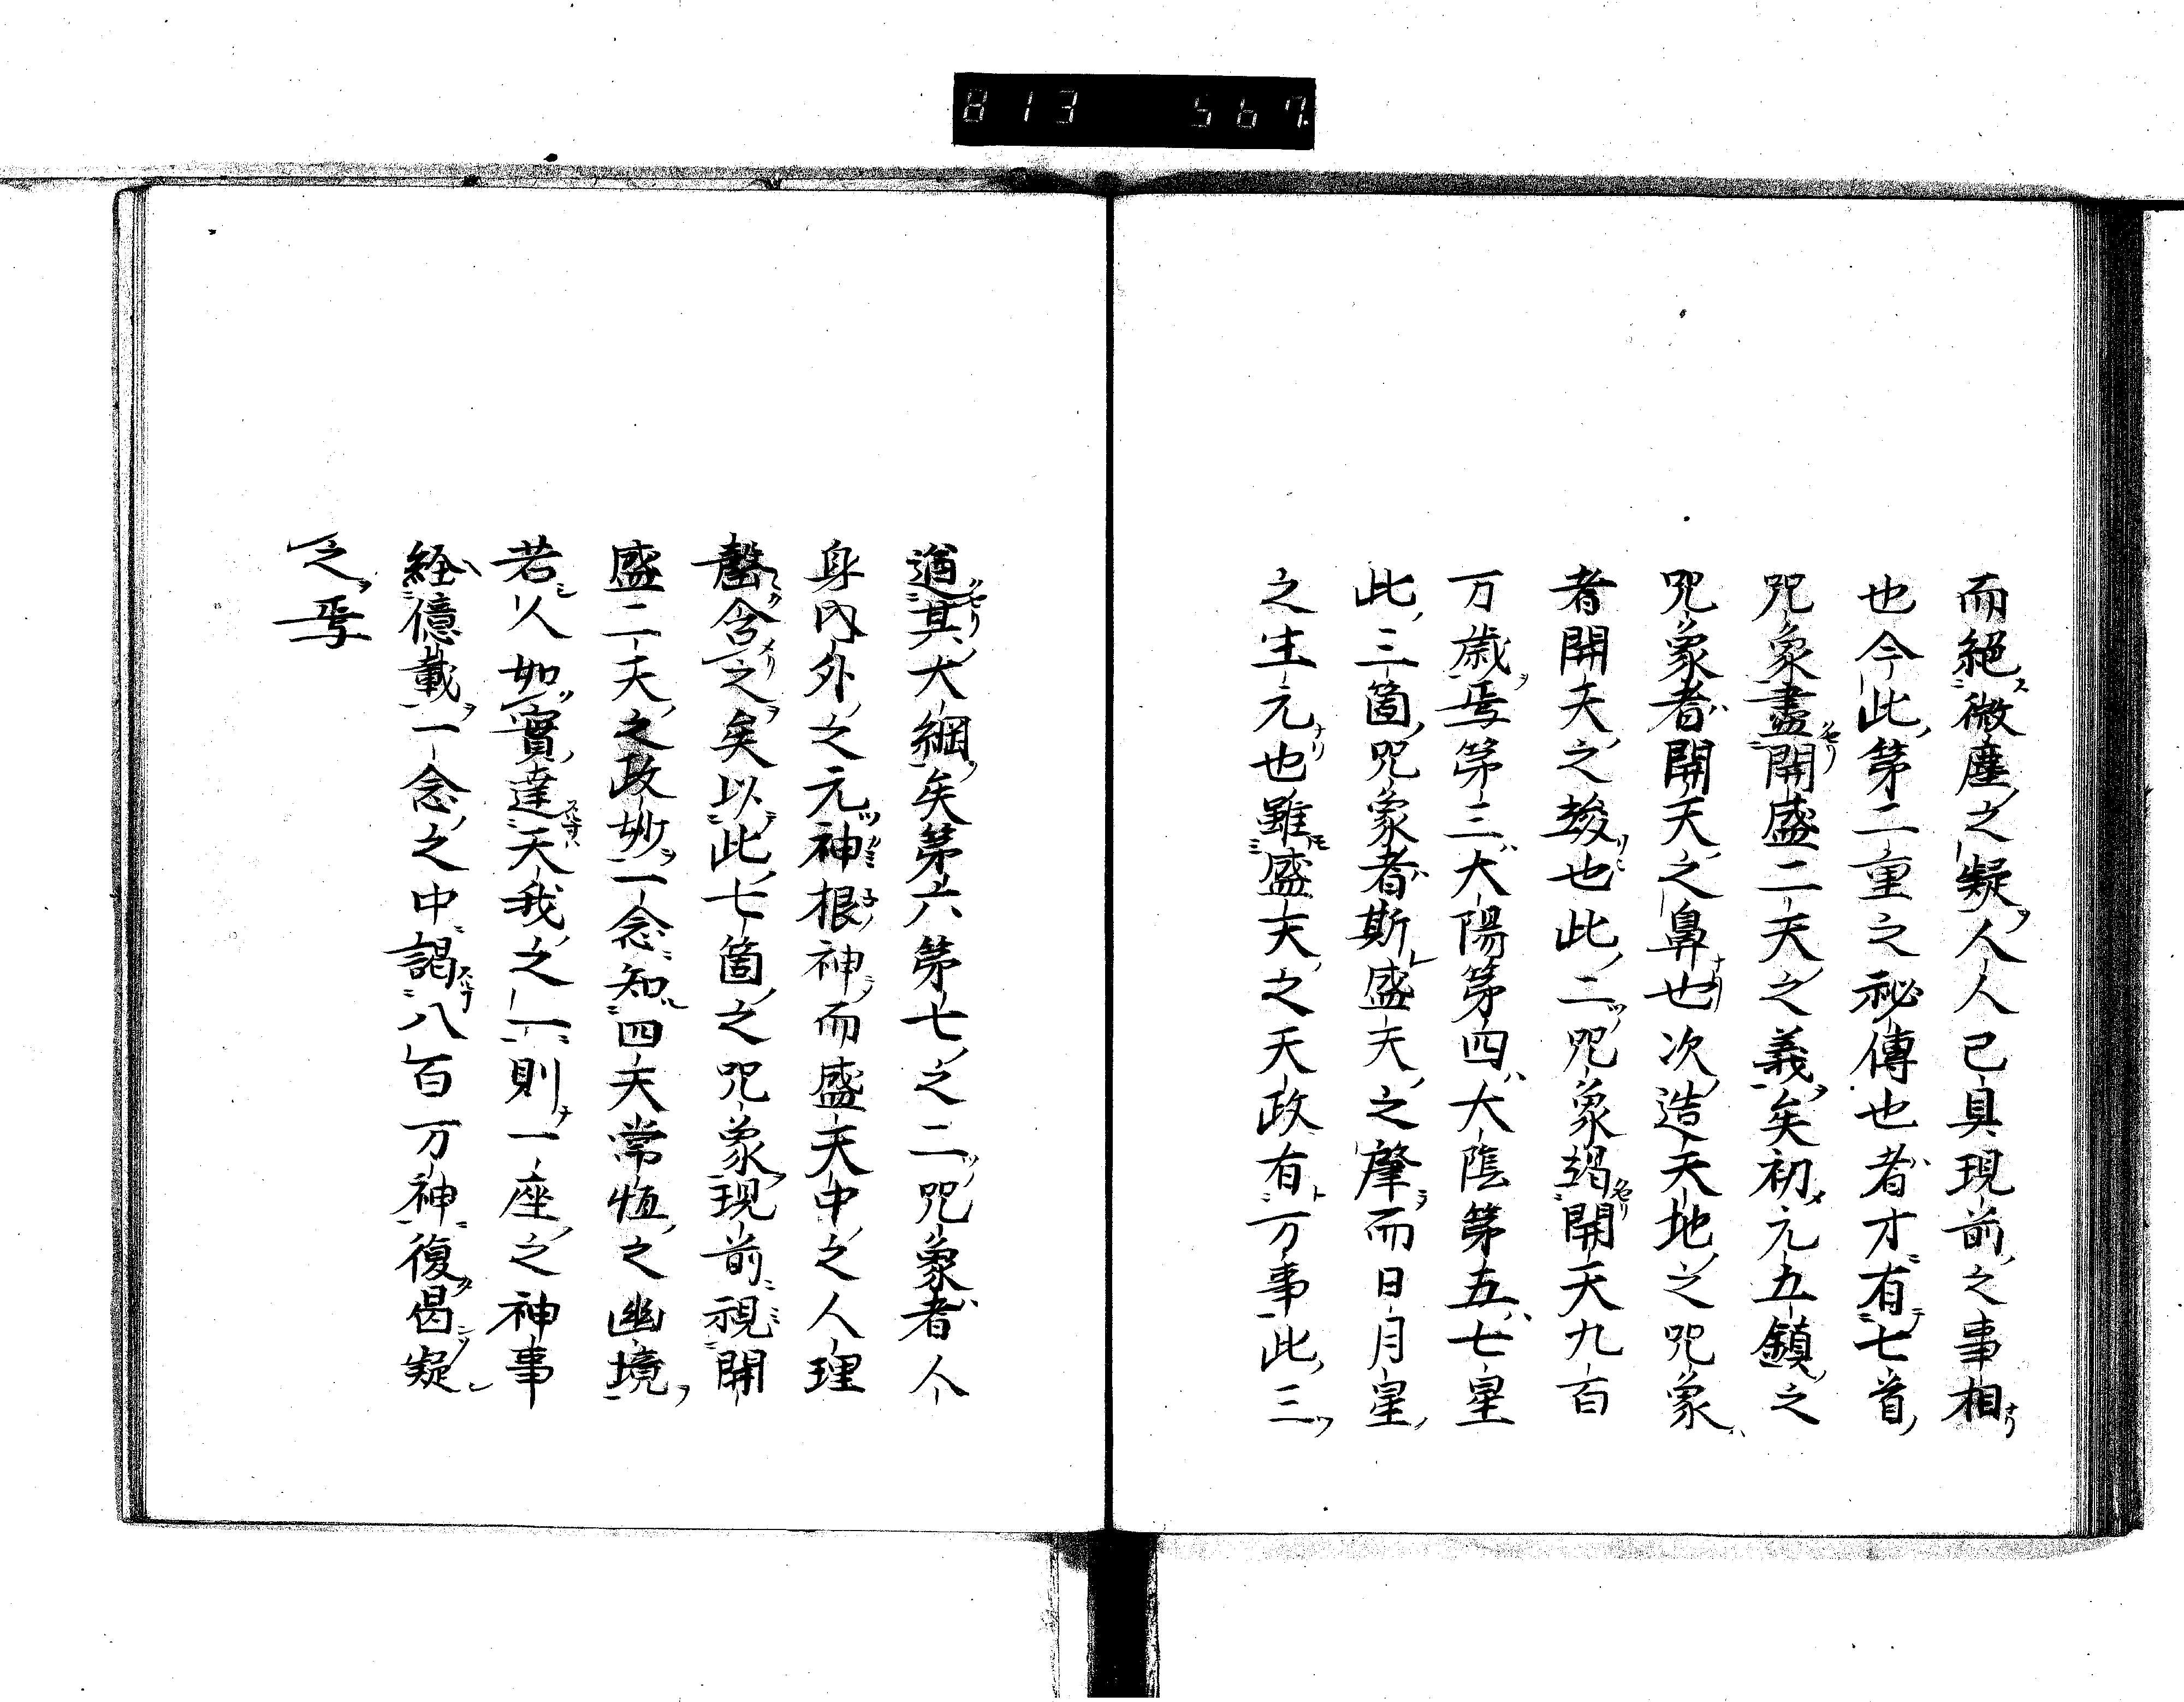 813 567
而絕微塵之疑人人已具現前之事相
也今此第二重之祕傳也者才有七首
咒象盡開盛二天之義矣初元五鎮之
咒象者開天之鼻也次造天地之咒象
者開天之竣也此二咒象竭開天九百
万歲焉第三大陽第四大陰第五七星
此三箇咒象者斯盛天之肇而日月星
之生元也雖盛天之天政有万事此三
遒其大綱矣第六第七之二咒象者人
身內外之元神根神而盛天中之人理
罄含之矣以此七箇之咒象現前視開
盛二天之政妙一念知四天常恆之幽境
若人如實達天我之一則一座之神事
経億載一念之中謁八百万神復曷疑
之焉